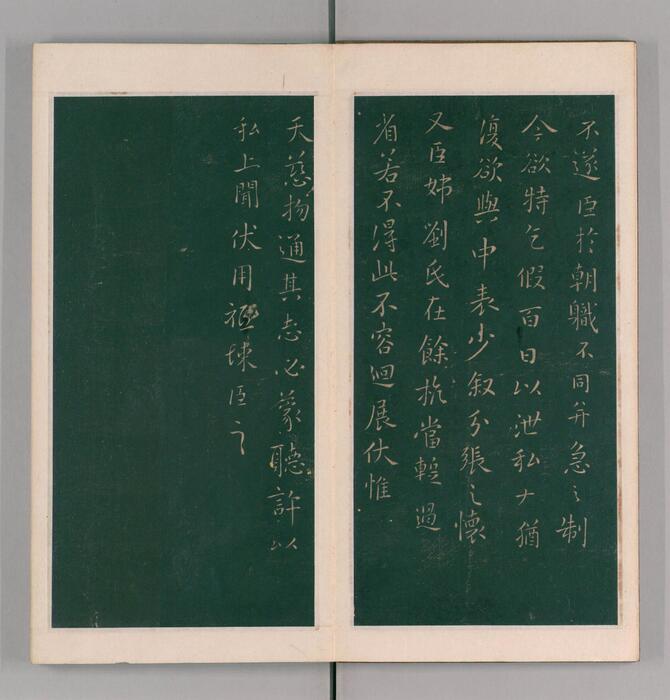 不遂臣於朝職不同并急之制
今欲特乞假百日以泄私
復欲與中表少叙分張之懷
又臣姊劉氏在餘杭當蹔過
省若不得此不容迴展伏惟
天慈物通其志必蒙聽許以
私上聞伏用悚臣之